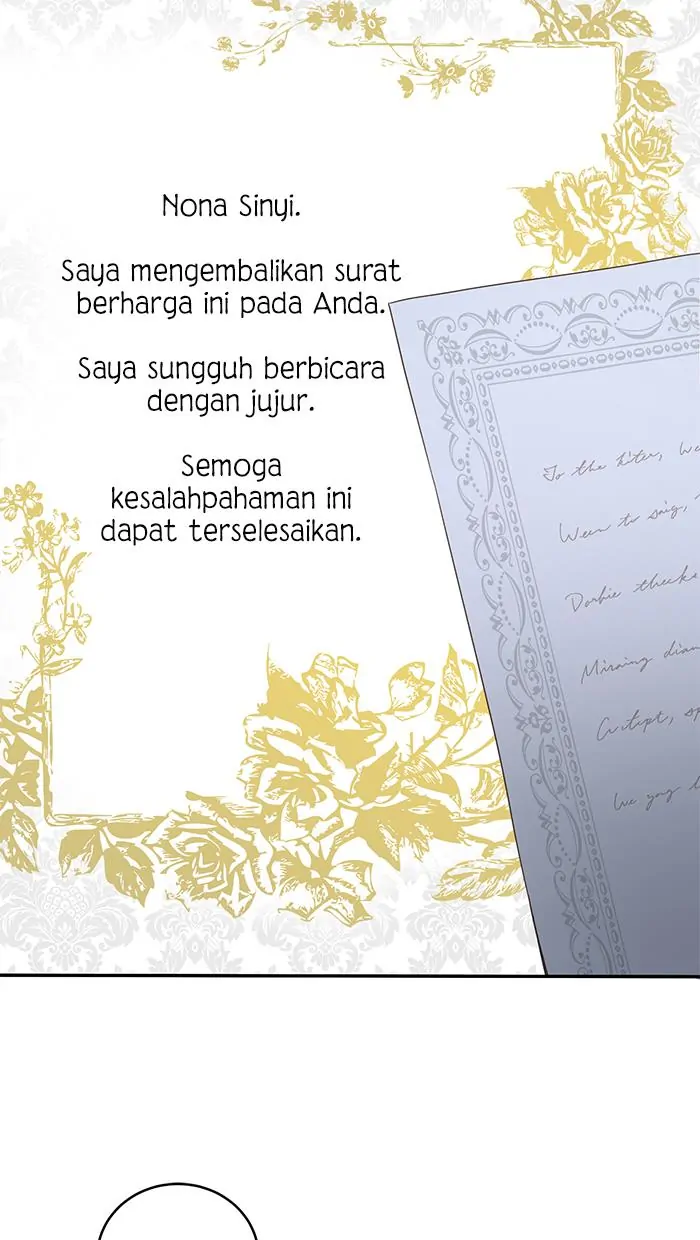 Nona Sinyi.
Saya mengembalikan surat
berharga ini pada Anda.
Saya sungguh berbicara
dengan jujur.
Semoga
kesalahpahaman ini
dapat terselesaikan.
To the